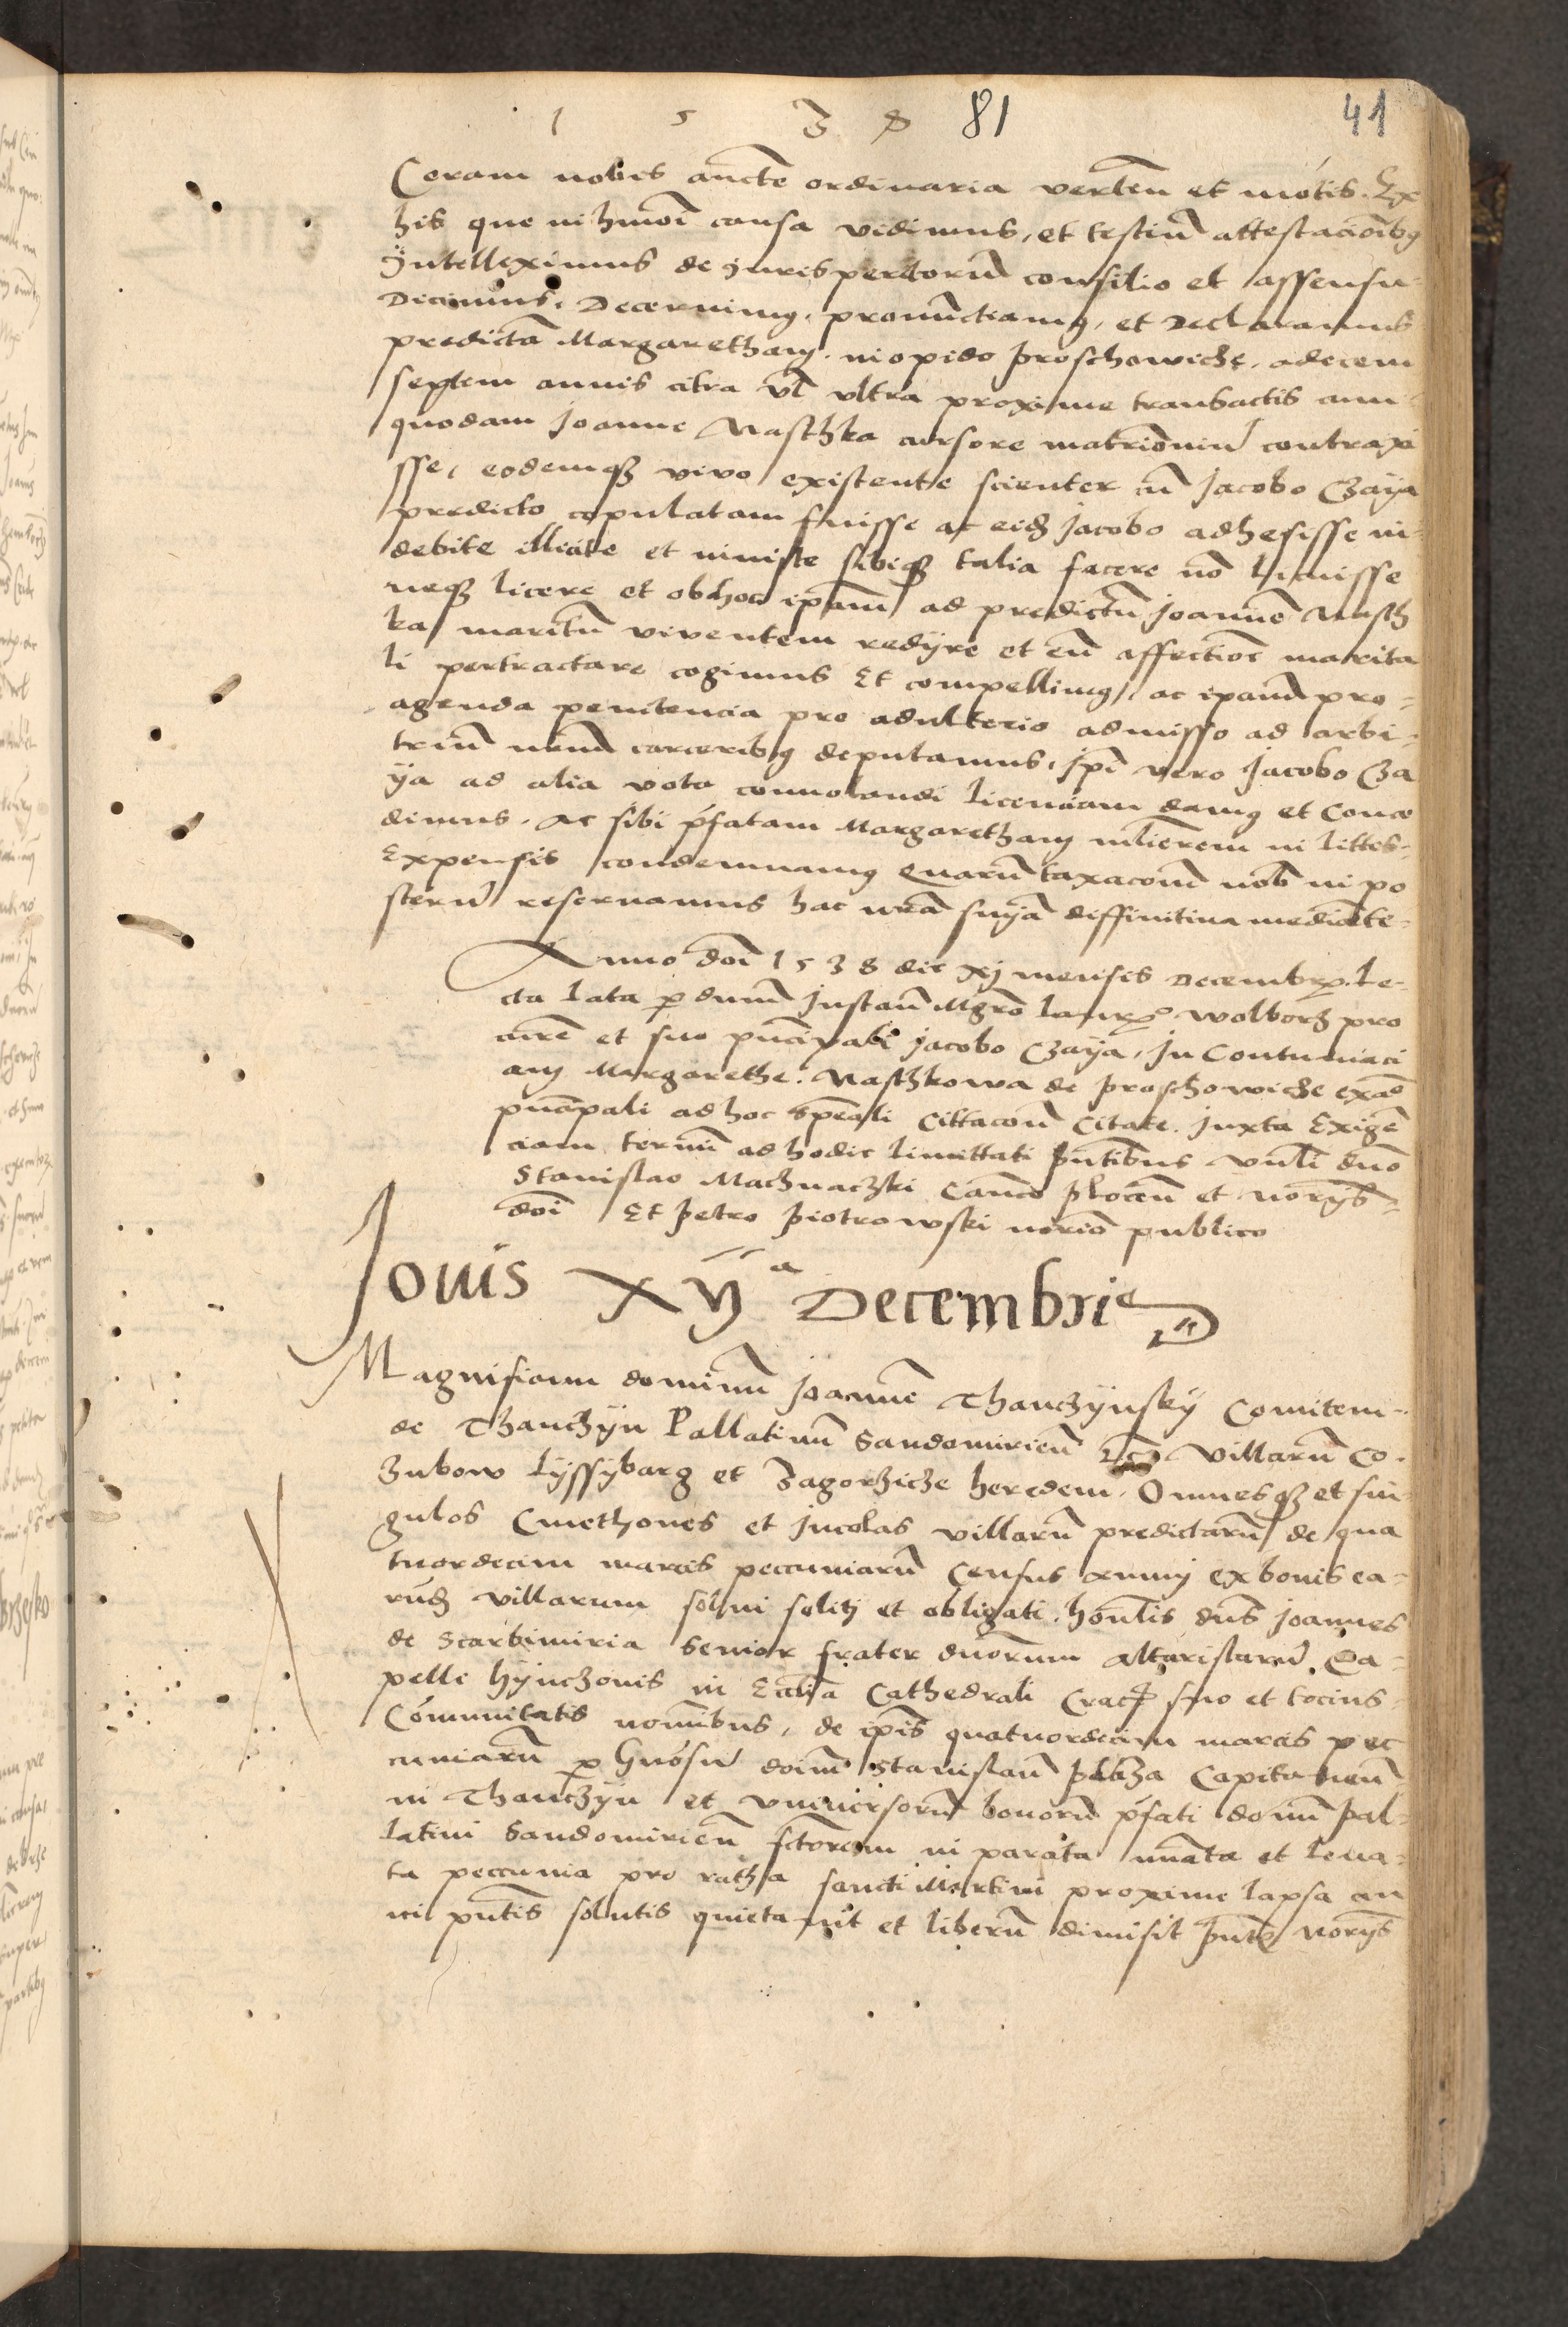 1 5 3 8 81 41
Coram nobis aucte ordinaria verten et motis. Ex
his que in hmoi causa vidimus, et testiu attestacoibus
Intelleximus de jurisperitoru consilio et assensu
Dicimus. Decernimus. pronunctiamus, et Declaramus
predicta Margaretham. in opido proschowicze. a decem
septem annis citra vl ultra proxime transactis cum
quodam Joanne Naschka cursore matrimoniu contraxi
sse, eodemq vivo existente scienter cu Jacobo Czaya
predicto copulatam fuisse ac eid Jacobo adhesisse in
debite illicite et iniuste sibiq talia facere no licuisse
neq licere et ob hoc ipam ad predictu Joanne Nasch
ka maritu viventem redyre et eu affectioe marita
li pertractare cogimus Et compellimus, ac ipam pro
agenda penitencia pro adulterio admisso ad arbi-
triu nrum carceribus deputamus, ipi vero Jacobo Cza
ya ad alia vota convolandi licenciam damus et conce
dimus. Ac sibi pfatam Margaretham mlierem in littes
Expensis condemnamus quaru taxacom nob in po
steru reservamus hac nra snia diffinitiva mediate
Anno doi 1538 die xj mensis Decembr. le-
cta lata p dnum Instan Mgro Laur Wolborz pro
cure et suo pncipali Jacobo Czaya, In Contumaci
am Margarethe Naschkowa de proschowicze ex ad
pncipali ad hoc speali cittacom citate. Juxta Exige
ciam termi ad hodie limittati pntibus vnli dno
Stanislao Machnaczki Canco plocen et norys
doi Et petro piotrowski norio publico
Jovis XIJa Decembris
Magnificum dominu Joanne Thanczynsky Comitem
de Thanczyn Pallatinu Sandomirien etc villaru Co
zubow Lyssybarg et Zagorzicze heredem. Omnesq et sin
gulos Cmethones et incolas villaru predictaru de qua
tuordecim marcis peccuniaru census annuj ex bonis ea-
rud villarum solvi soliti et obligati. honlis dns Joannes
de Scarbimiria senior frater dnorum altaristaru Ca-
pelle Hynczonis in Ecclia Cathedrali Crac suo et tocius
Comunitatis nominibus, de ipis quatuordecim marcis pec
cuniaru p Gnosu doim Stanislau plaza Capitaneu
in Thanczyn et universoru bonoru pfati domi pal-
latini Sandomirien fctorem in parata nuata et leva-
ta peccunia pro ratha sancti Martini proxime lapsa an
ni pntis solutis quietavit et liberu dimisit pnte norys